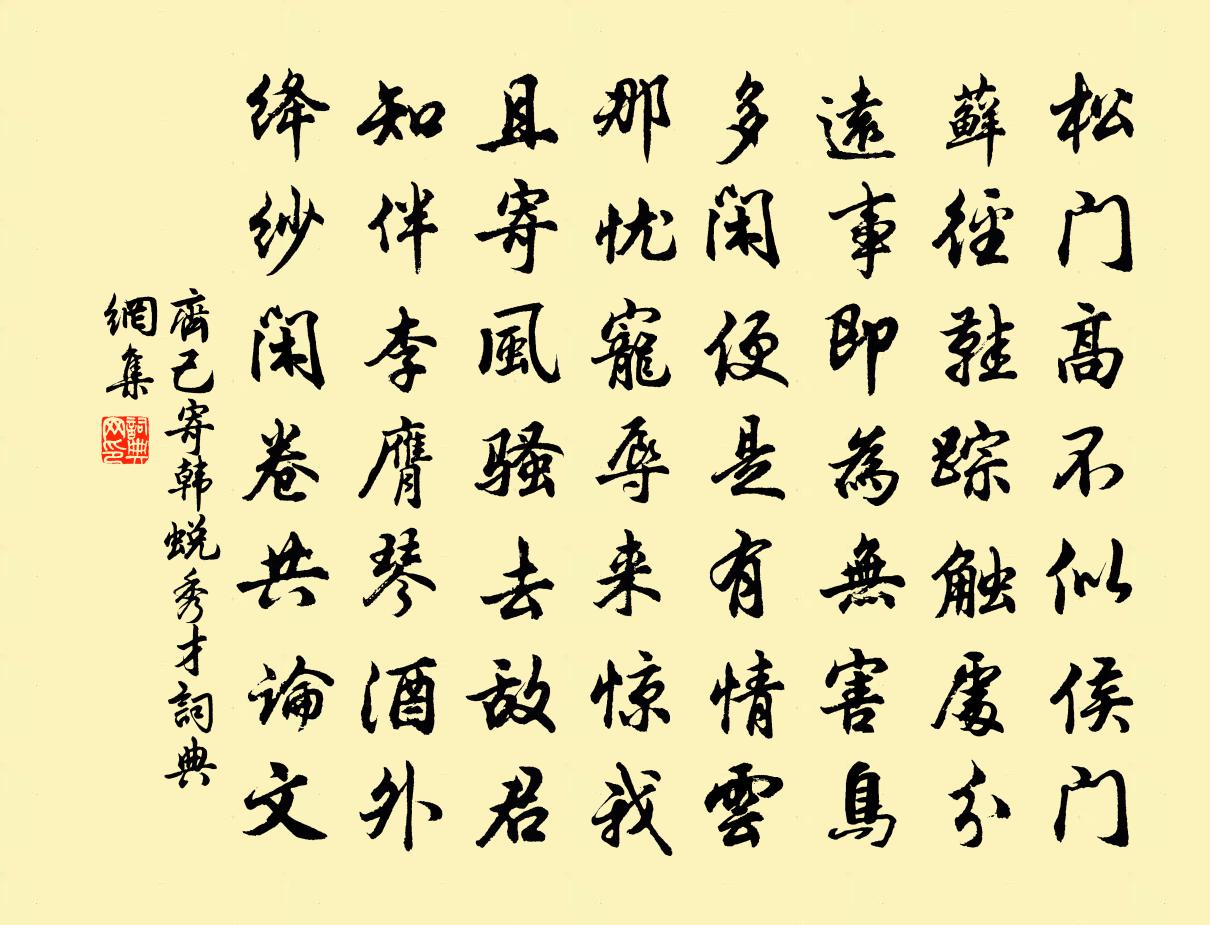 松门高不似侯门
藓径鞋踪触處分
遠事即為無害鳥
多闲便是有情雲
那忧寵辱来惊我
且寄風骚去敌君
知伴李膺琴酒外
绛纱闲卷共论文
齊己寄韩蜕秀才詞典
網集
詞典网印